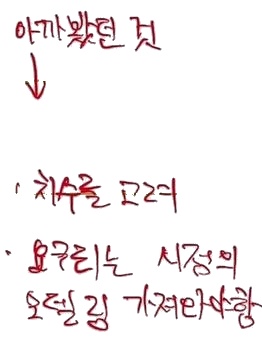 아까봤던 것
· 치수를 고려
· 요구되는 시점의
모델링 가져와야함